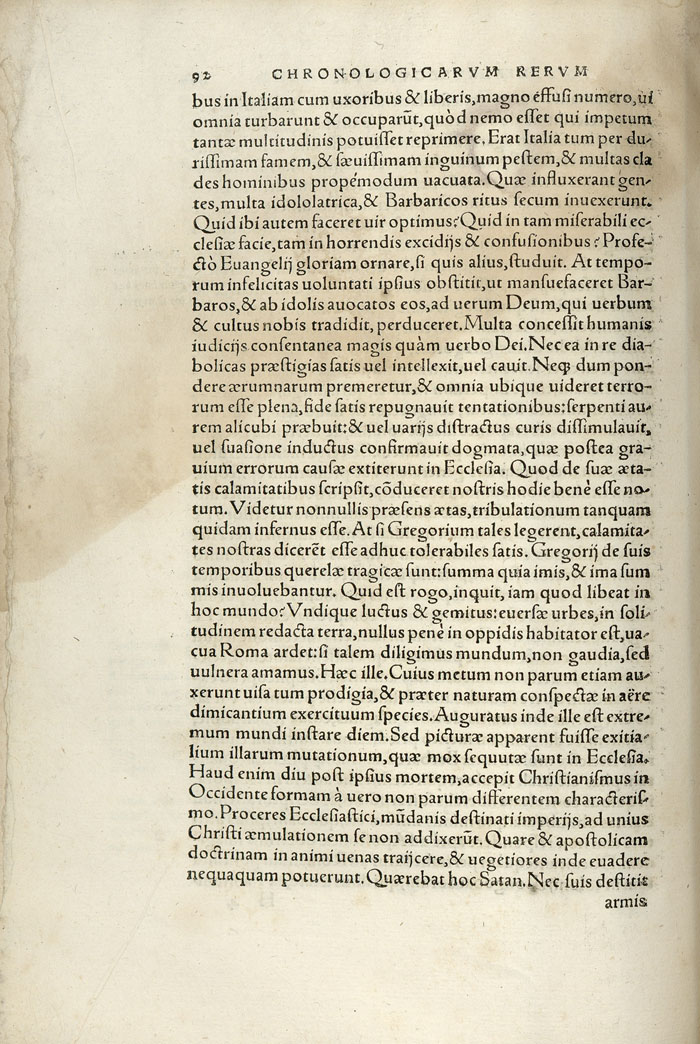 92 CHRONOLOGICARVM RERVM
bus in Italiam cum uxoribus & liberis, magno effusi numero, ui
omnia turbarunt & occuparũt, quòd nemo esset qui impetum
tantæ multitudinis potuisset reprimere. Erat Italia tum per du-
rissimam famem, & sæuissimam inguinum pestem, & multas cla
des hominibus propémodum uacuata. Quæ influxerant gen-
tes, multa idololatrica, & Barbaricos ritus secum inuexerunt.
Quid ibi autem faceret uir optimus? Quid in tam miserabili ec-
clesiæ facie, tam in horrendis excidijs & confusionibus? Profe-
ctò Euangelij gloriam ornare, si quis alius, studuit. At tempo-
rum infelicitas uoluntati ipsius obstitit, ut mansuefaceret Bar-
baros, & ab idolis auocatos eos, ad uerum Deum, qui uerbum
& cultus nobis tradidit, perduceret. Multa concessit humanis
iudicijs consentanea magis quàm uerbo Dei. Nec ea in re dia-
bolicas præstigias satis uel intellexit, uel cauit. Neq; dum pon-
dere ærumnarum premeretur, & omnia ubique uideret terro-
rum esse plena, fide satis repugnauit tentationibus: serpenti au-
rem alicubi præbuit: & uel uarijs distractus curis dissimulauit,
uel suasione inductus confirmauit dogmata, quæ postea gra-
uium errorum causæ extiterunt in Ecclesia. Quod de suæ æta-
tis calamitatibus scripsit, cõduceret nostris hodie benè esse no-
tum. Videtur nonnullis præsens ætas, tribulationum tanquam
quidam infernus esse. At si Gregorium tales legerent, calamita-
tes nostras dicerẽt esse adhuc tolerabiles satis. Gregorij de suis
temporibus querelæ tragicæ sunt: summa quia imis, & ima sum
mis inuoluebantur. Quid est rogo, inquit, iam quod libeat in
hoc mundo? Vndique luctus & gemitus: euersæ urbes, in soli-
tudinem redacta terra, nullus penè in oppidis habitator est, ua-
cua Roma ardet: si talem diligimus mundum, non gaudia, sed
uulnera amamus. Hæc ille. Cuius metum non parum etiam au-
xerunt uisa tum prodigia, & præter naturam conspectæ in aëre
dimicantium exercituum species. Auguratus inde ille est extre-
mum mundi instare diem. Sed picturæ apparent fuisse exitia-
lium illarum mutationum, quæ mox sequutæ sunt in Ecclesia.
Haud enim diu post ipsius mortem, accepit Christianismus in
Occidente formam à uero non parum differentem characteris-
mo. Proceres Ecclesiastici, mũdanis destinati imperijs, ad unius
Christi æmulationem se non addixerũt. Quare & apostolicam
doctrinam in animi uenas traijcere, & uegetiores inde euadere
nequaquam potuerunt. Quærebat hoc Satan. Nec suis destitit
armis